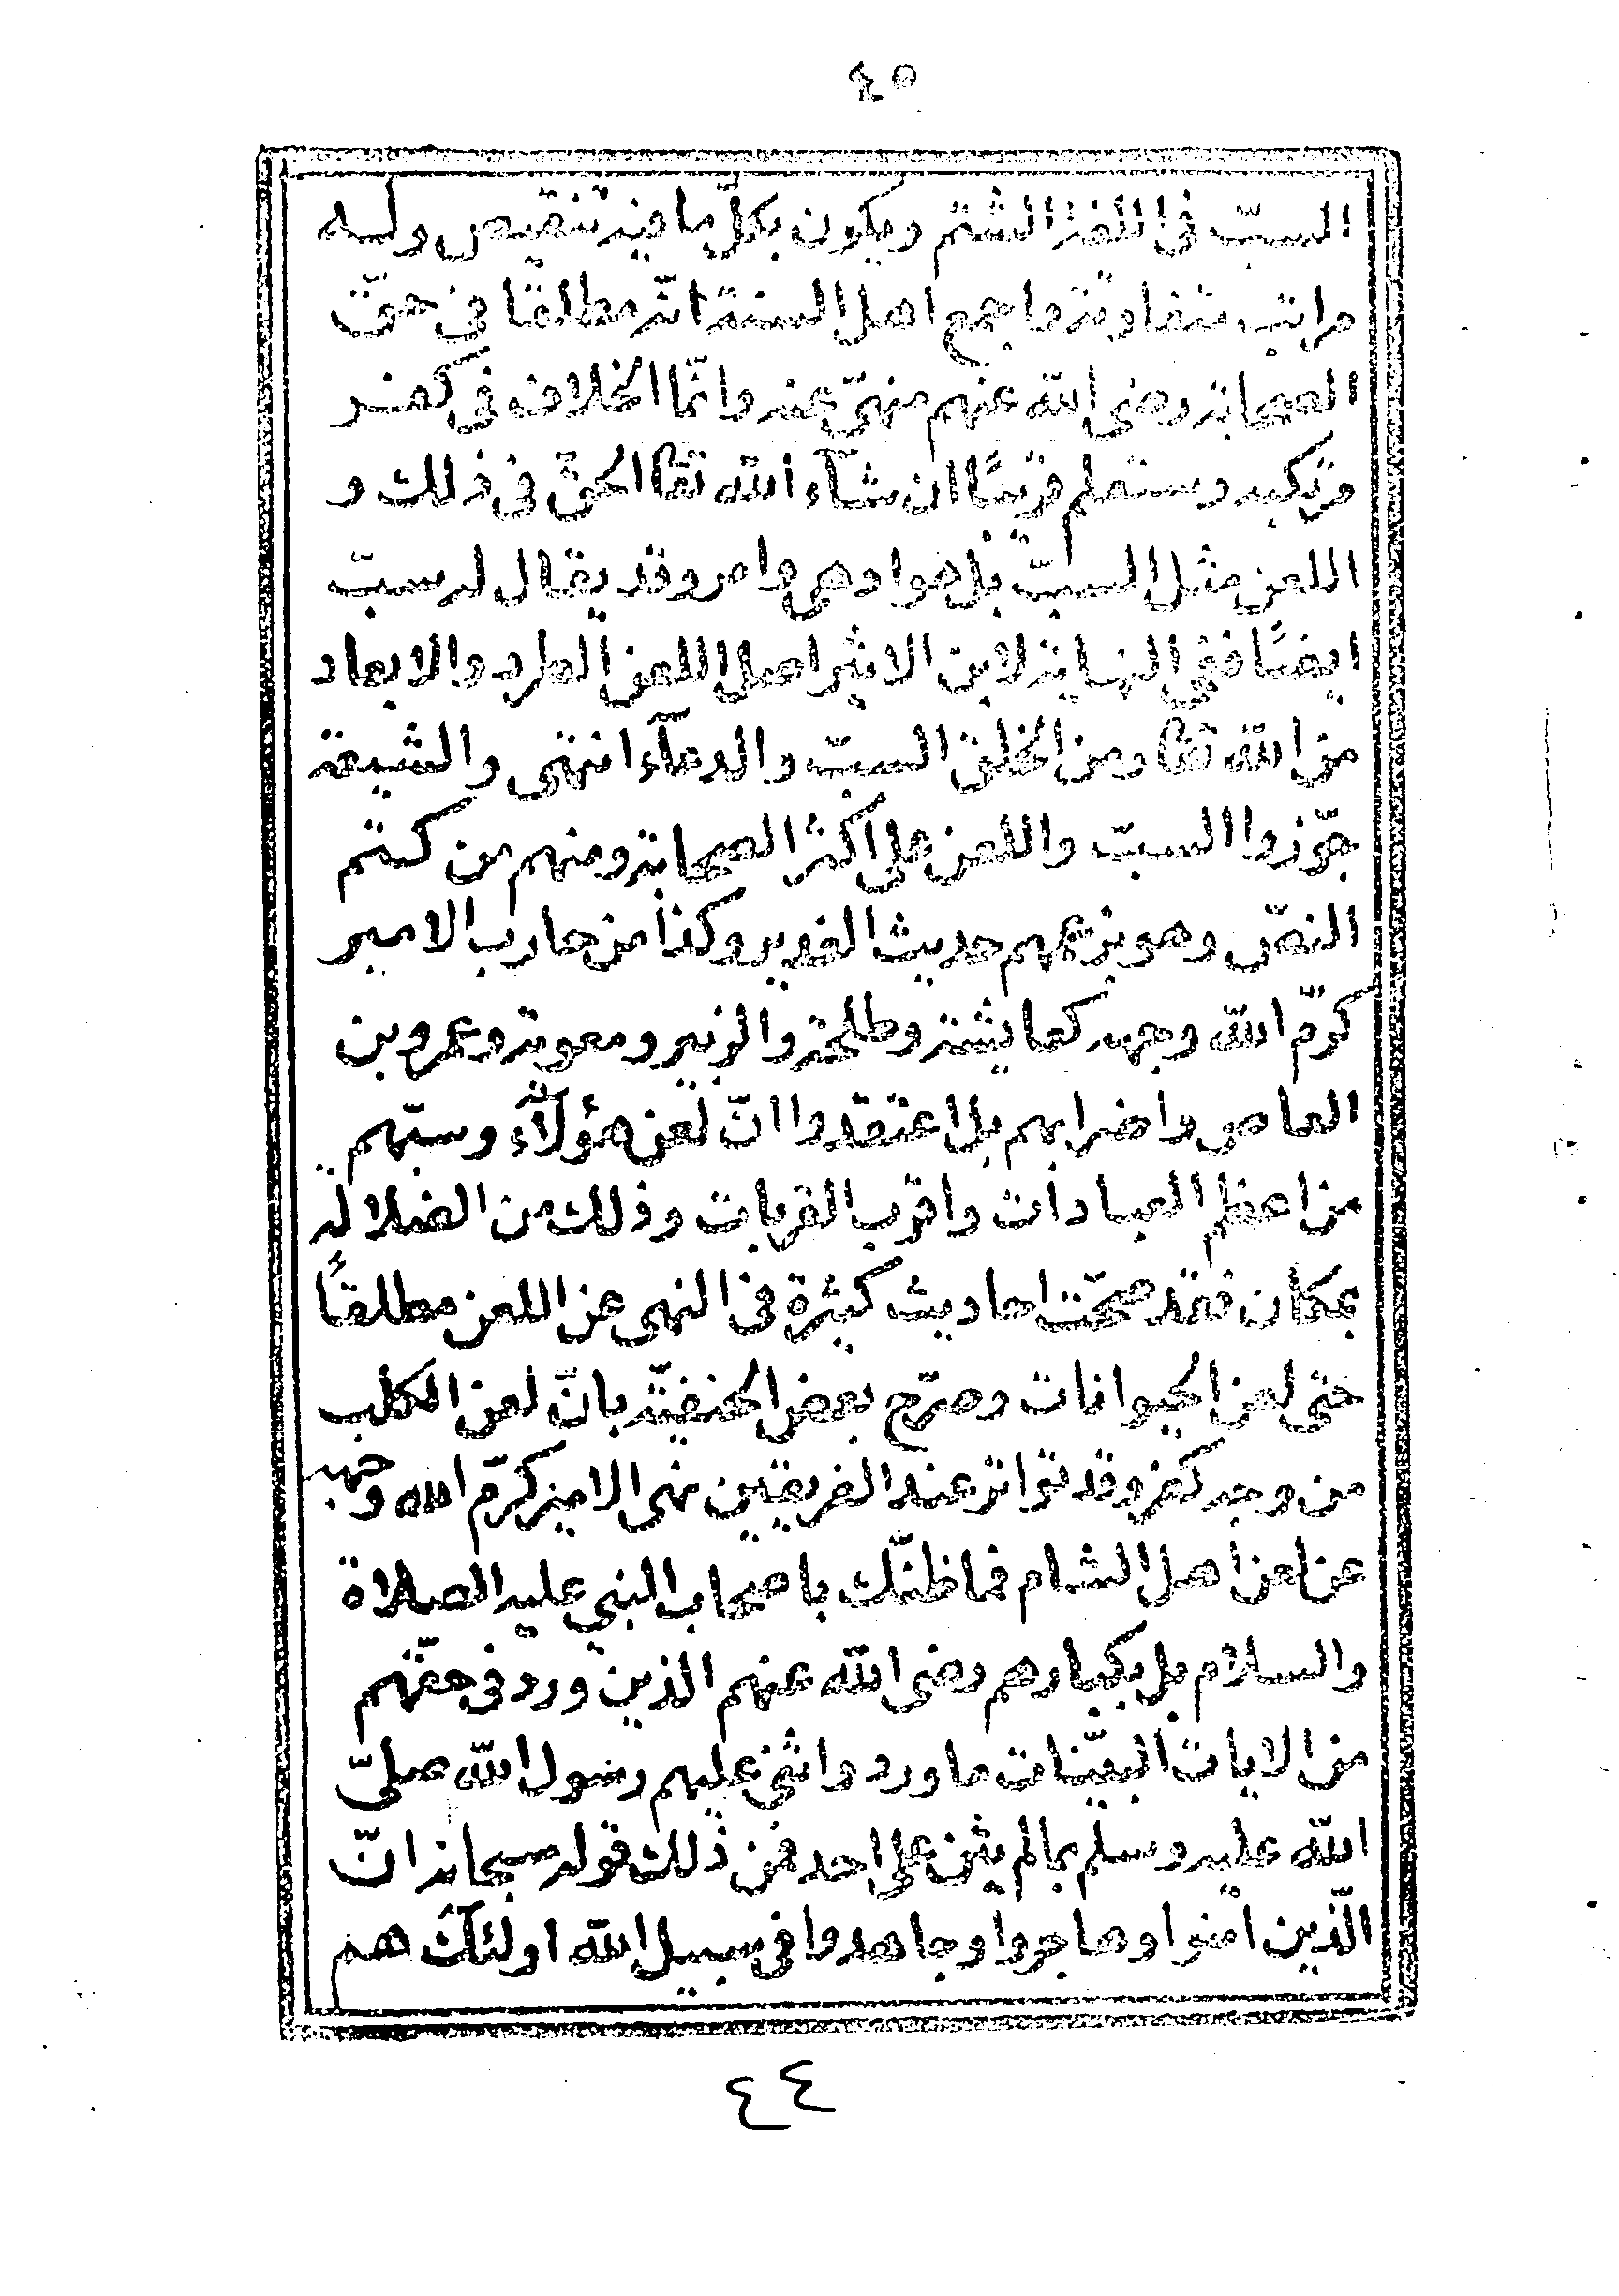 ٤٥
السبّ فى اللغة الشتم ويكون بكلّ ما فيه تنقيص وله
مراتب متفاوتة واجمع اهل السنة انّه مطلقا فى حقّ
الصحابة رضى الله عنهم منهىّ عنه وانّما الخلاف فى كفر
مرتكبه وستعلم قريبًا ان شآء الله تعا الحقّ فى ذلك و
اللعن مثل السبّ بل هو ادهى وامر وقد يقال له سبّ
ايضًا ففى النهاية لابن الاثير اصل اللعن الطرد والابعاد
من الله تعا ومن الخلق السبّ والدعآء انتهى والشيعة
جوّزوا السبّ واللعن على اكثر الصحابة ومنهم من كتم
النصّ وهو بزعمهم حديث الغدير وكذا من حارب الامير
كرّم الله وجهه كعايشة وطلحة والزبير ومعوية وعمرو بن
العاص واضرابهم بل اعتقدوا انّ لعن هؤلآء وسبّهم
من اعظم العبادات واقرب القربات وذلك من الضلالة
بمكان فقد صحّت احاديث كثيرة فى النهى عن اللعن مطلقاً
حتى لعن الحيوانات وصرّح بعض الحنفيّة بانّ لعن الكلب
من وجه كفر وقد تواتر عند الفريقين نهى الامير كرّم الله وجهه
عن لعن اهل الشام فما ظنّك باصحاب النبي عليه الصلاة
والسلام بل بكبارهم رضى الله عنهم الذين ورد فى حقّهم
من الايات البيّنات ما ورد واثنى عليهم رسول الله صلىّ
الله عليه وسلّم بما لم يثن على احد فمن ذلك قوله سبحانه انّ
الّذين امنوا وهاجروا وجاهدوا فى سبيل الله اولئك هم
٤٤